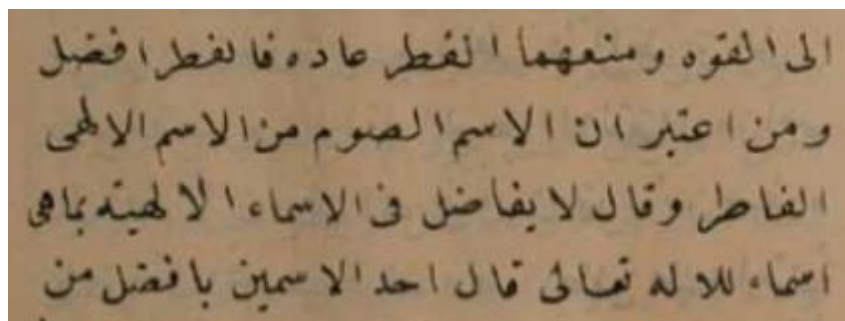 الى القوه ومنعهما الفطر عاده فالفطر افضل
ومن اعتبر ان الاسم الصوم من الاسم الالهى
الفاطر وقال لا يفاضل فى الاسماء الالهيته بماهى
اسماء للاله تعالى قال احد الاسمين بافضل من